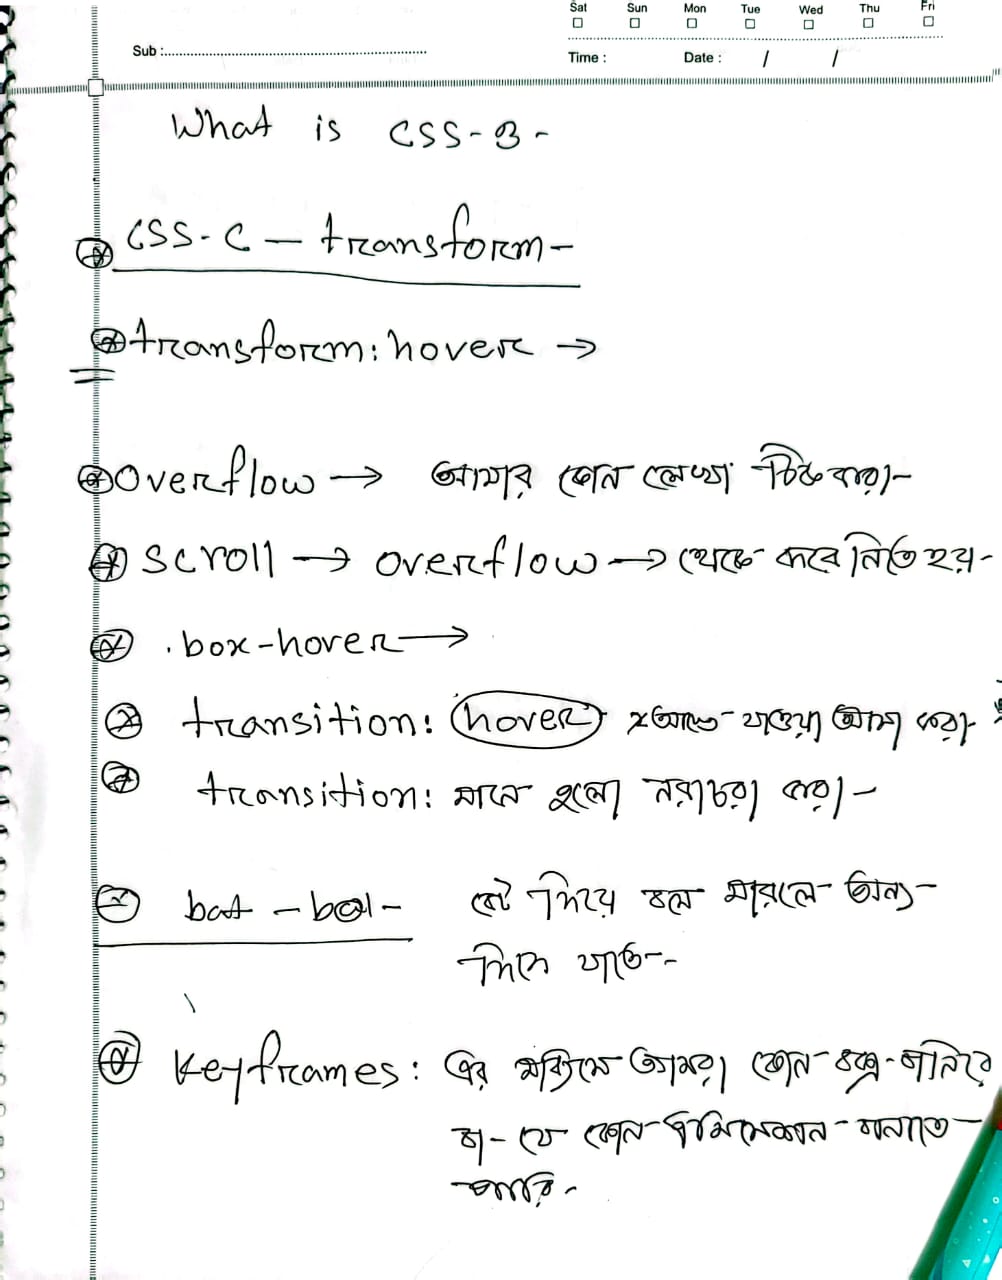 Sat Sun Mon Tue Wed Thu Fri
Sub :
Time : Date : / /
What is CSS-3-
CSS-C — transform-
transform: hover →
overflow → আমার কোন লেখা ঠিক করা-
scroll → overflow → থেকে করে নিতে হয়-
.box-hover →
transition: hover যাওয়া আসা করা-
transition: মানে হলো নরাচরা করা-
bat - bal- বেট দিয়ে বল মারলে- অন্য-
দিকে যাবে--
Keyframes: এর আমরা কোন-
বা- যে কোন- এনিমেশান- বানাতে-
পারি-